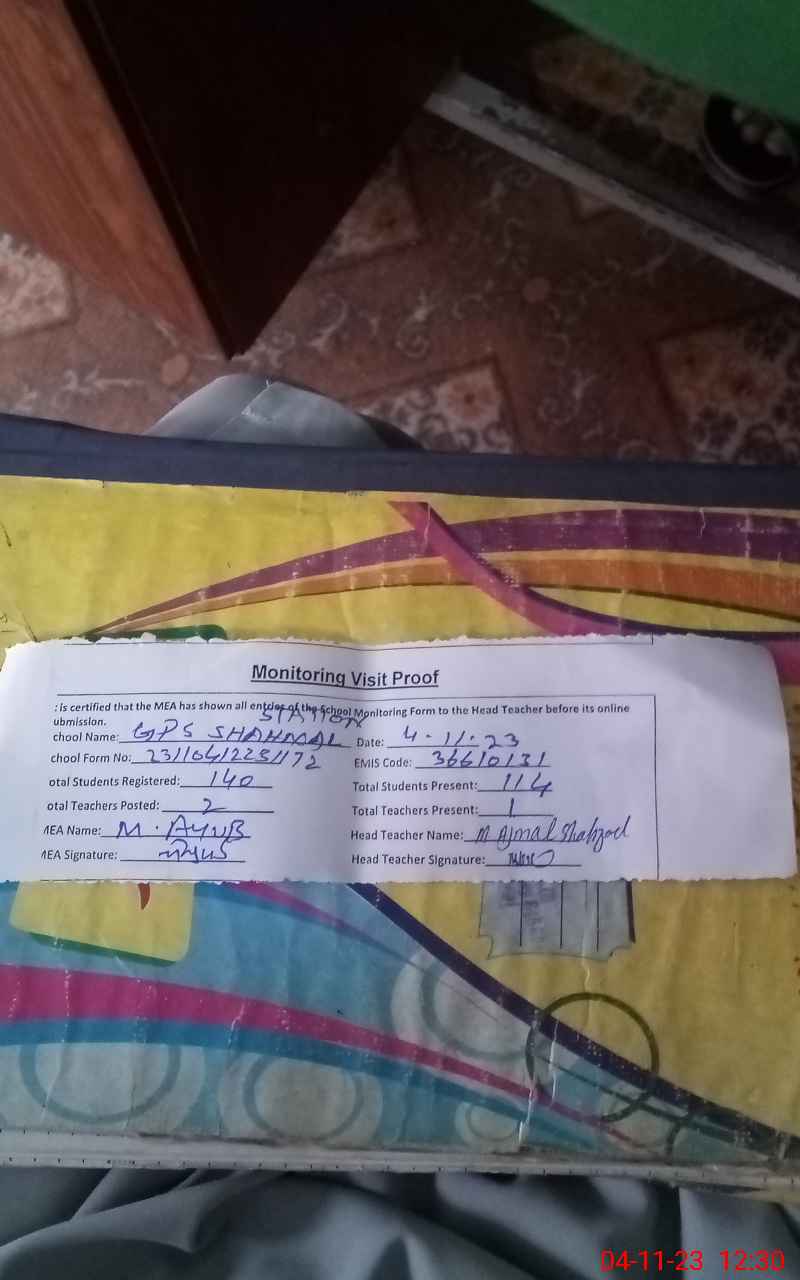 Monitoring Visit Proof
: is certified that the MEA has shown all entries of the School Monitoring Form to the Head Teacher before its online
ubmission.
STATION
chool Name: GPS SHAHMAL Date: 4.11.23
chool Form No: EMIS Code: 36610131
otal Students Registered: 140 Total Students Present: 114
otal Teachers Posted: 2 Total Teachers Present: 1
MEA Name: M. AYUB Head Teacher Name: M Ajmal Shahzad
MEA Signature: Head Teacher Signature:
04-11-23 12:30